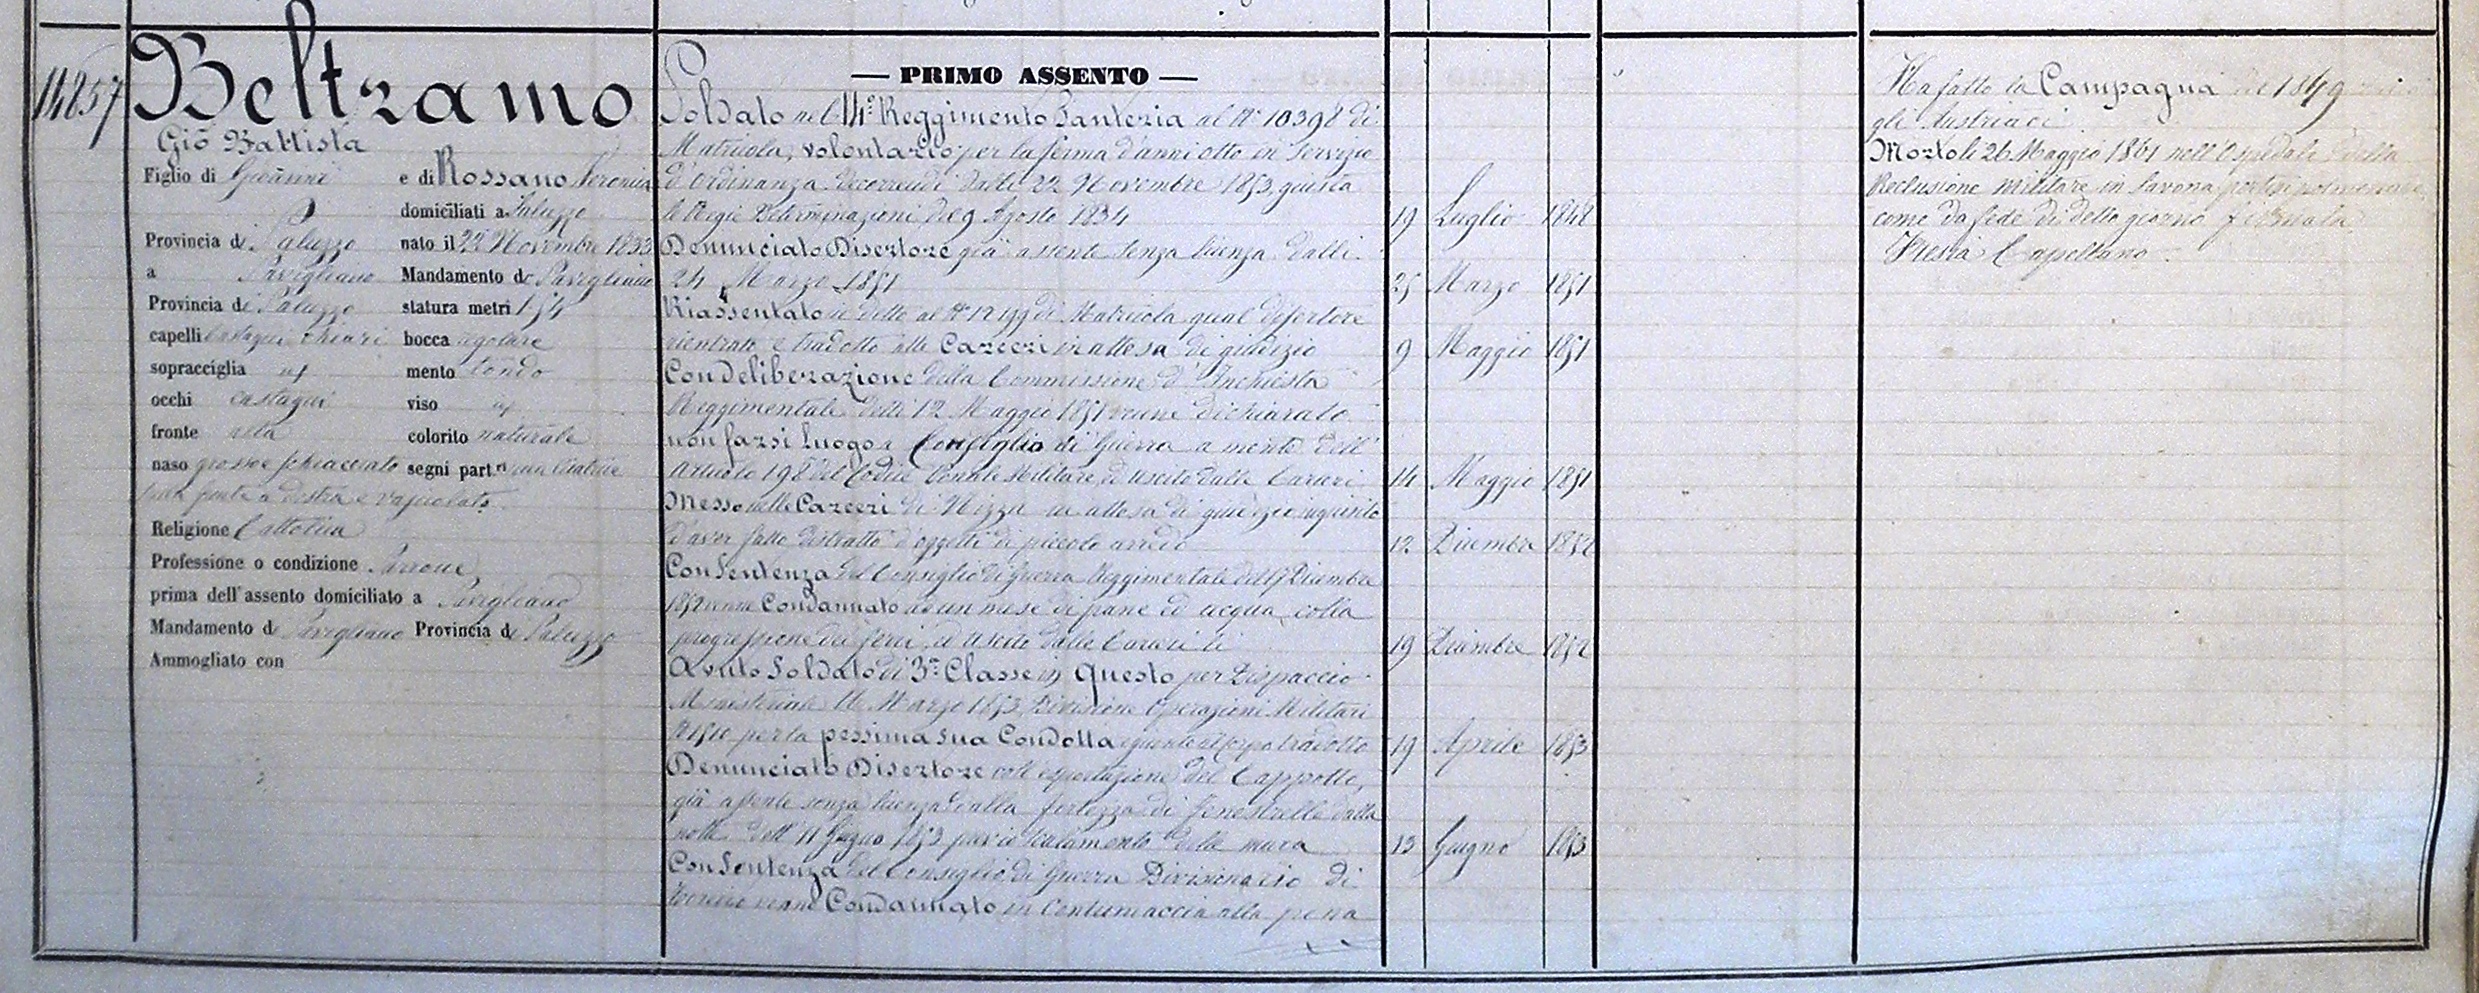 14857
Beltramo
Gio Battista
Figlio di Giovanni e di Rossano Veronica
domiciliati a Saluzzo
Provincia di Saluzzo nato il 22 Novembre 1833
a Savigliano Mandamento di Savigliano
Provincia di Saluzzo statura metri 1,54
capelli castagni chiari bocca regolare
sopracciglia mento tondo
occhi castagni viso
fronte alta colorito naturale
naso grosso e schiacciato segni part.ri una cicatrice
fronte a destra e vajuolato.
Religione Cattolica
Professione o condizione
prima dell'assento domiciliato a Savigliano
Mandamento di Savigliano Provincia di Saluzzo
Ammogliato con
— PRIMO ASSENTO —
Soldato nel 14° Reggimento Fanteria al N° 10398 di
Matricola, volontario per la ferma d'anni otto in servizio
d'ordinanza decorrendi dalli 22 Novembre 1853, giusta
le Regie Determinazioni del 9 Agosto 1834 19 Luglio 1848
Denunciato Disertore già assente senza licenza dalli
24 Marzo 1851 25 Marzo 1851
Riassentato in detto al N° 12199 di Matricola qual disertore
rientrato e tradotto alle Carceri in attesa di giudizio 9 Maggio 1851
Con deliberazione della Commissione d'Inchiesta
Reggimentale delli 12 Maggio 1851 venne dichiarato
non farsi luogo a Consiglio di Guerra a mente dell'
articolo 198 del Codice Penale Militare, ed uscito dalle Carceri 14 Maggio 1851
Messo nelle Carceri di Nizza in attesa di giudizio inquisito
d'aver fatto distratto d'oggetti di piccolo arredo 12 Dicembre 1852
Con Sentenza del Consiglio di Guerra Reggimentale delli 17 Dicembre
1852 venne Condannato ad un mese di pane ed acqua, colla
progressione dei ferri, ed uscito dalle Carceri li 19 Dicembre 1852
Avuto Soldato di 3.a Classe in questo per Dispaccio
Ministeriale 16 Marzo 1853, Divisione Operazioni Militari
N° 1510 per la pessima sua Condotta e giunto al Corpo tradotto 19 Aprile 1853
Denunciato Disertore coll'esportazione del Cappotto,
già assente senza licenza dalla fortezza di Fenestrelle dalla
notte dell'11 Giugno 1853 previo scalamento delle mura 13 Giugno 1853
Con Sentenza del Consiglio di Guerra Divisionario di
Torino venne Condannato in Contumaccia alla pena
Ha fatto la Campagna del 1849 contro
gli Austriaci.
Morto li 26 Maggio 1861 nell'Ospedale della
Reclusione Militare in Savona per tisi polmonare
come da fede di detto giorno firmata
Capellano.